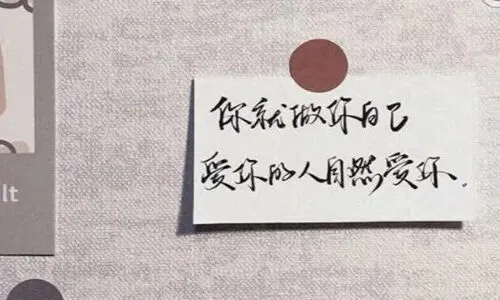 你就做你自己
爱你的人自然爱你.
lt